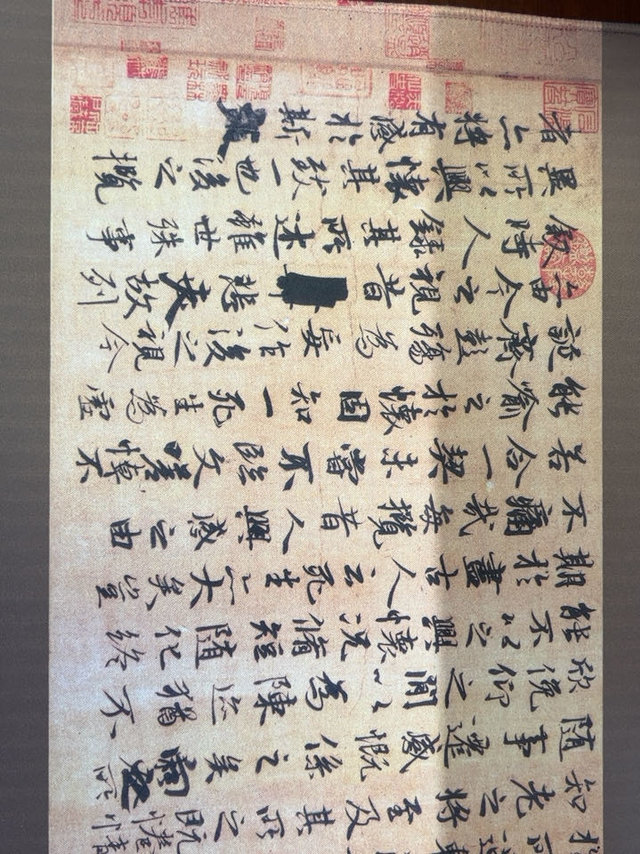 知老之將至及其所之既惓
隨事遷感慨係之矣向之所
欣俛仰之閒以為陳迹猶不
能不以之興懷況脩短隨化終
期於盡古人云死生亦大矣豈
不痛哉每攬昔人興感之由
若合一契未嘗不臨文嗟悼不
能喻之於懷固知一死生為虛
誕齊彭殤為妄作後之視今
亦由今之視昔悲夫故列
敘時人錄其所述雖世殊事
異所以興懷其致一也後之攬
者亦將有感於斯文